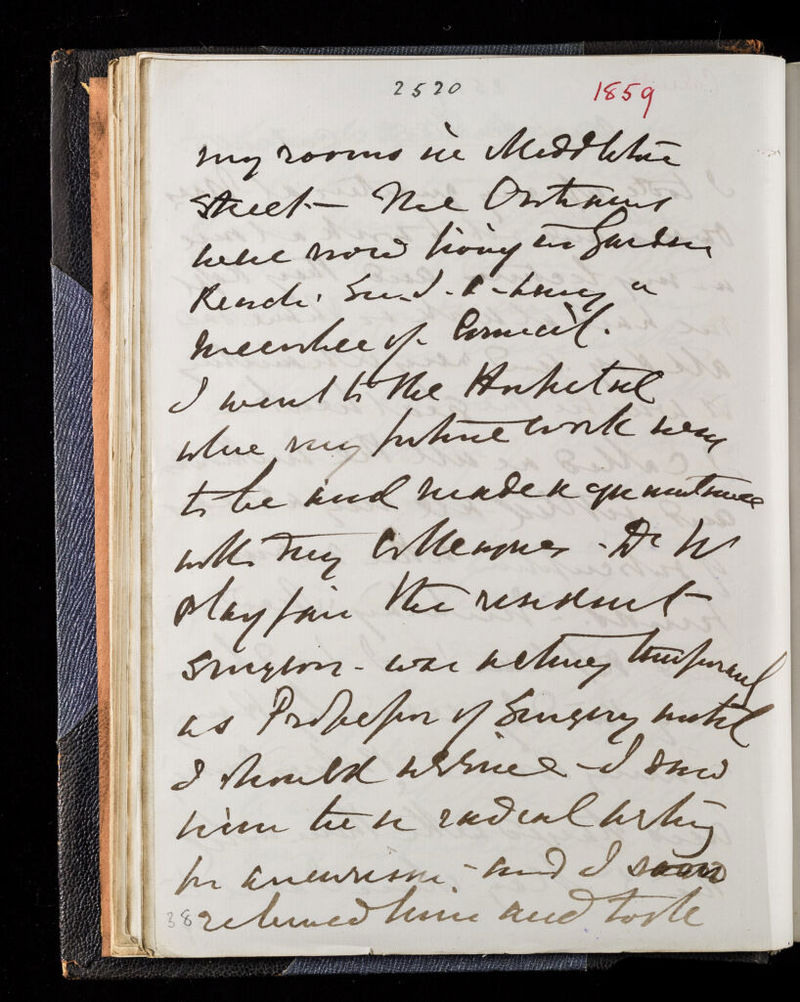 2520 1859
my rooms in Middleton
Street — The Outrams
were now living in Garden
Reach. Sir J. O - being a
member of Council.
I went to the Hospital
where my future work was
to be and made acquaintance
with my Colleagues - Dr W
Playfair the resident
Surgeon - was acting temporary
as Professor of Surgery until
I should arrive - I saw
him tie a radial artery
for aneurism - and I soon
38 relieved him and took